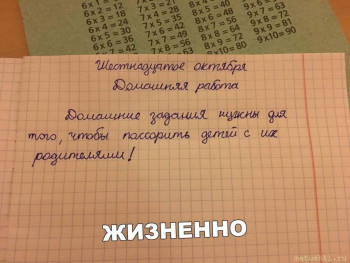 6x1=6
6x2=12
6x3=18
6x4=24
6x5=30
6x6=36
6x7=42
7x3=21
7x4=28
7x5=35
7x6=42
7x7=49
7x8=56
7x9=63
8x5=40
8x6=48
8x7=56
8x8=64
8x9=72
8x10=80
9x7=63
9x8=72
9x9=81
9x10=90
Шестнадцатое октября
Домашняя работа
Домашние задания нужны для
того, чтобы поссорить детей с их
родителями!
ЖИЗНЕННО